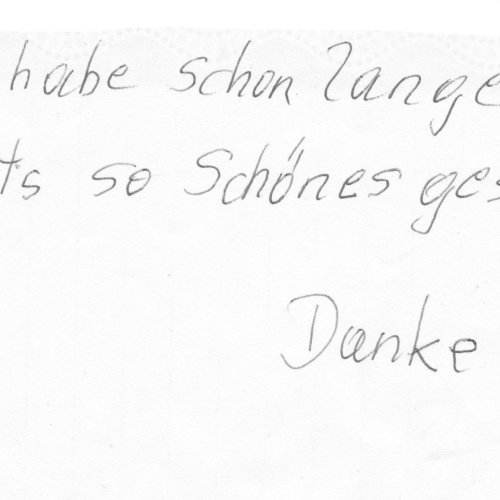 habe schon lange
ts so Schönes ges
Danke